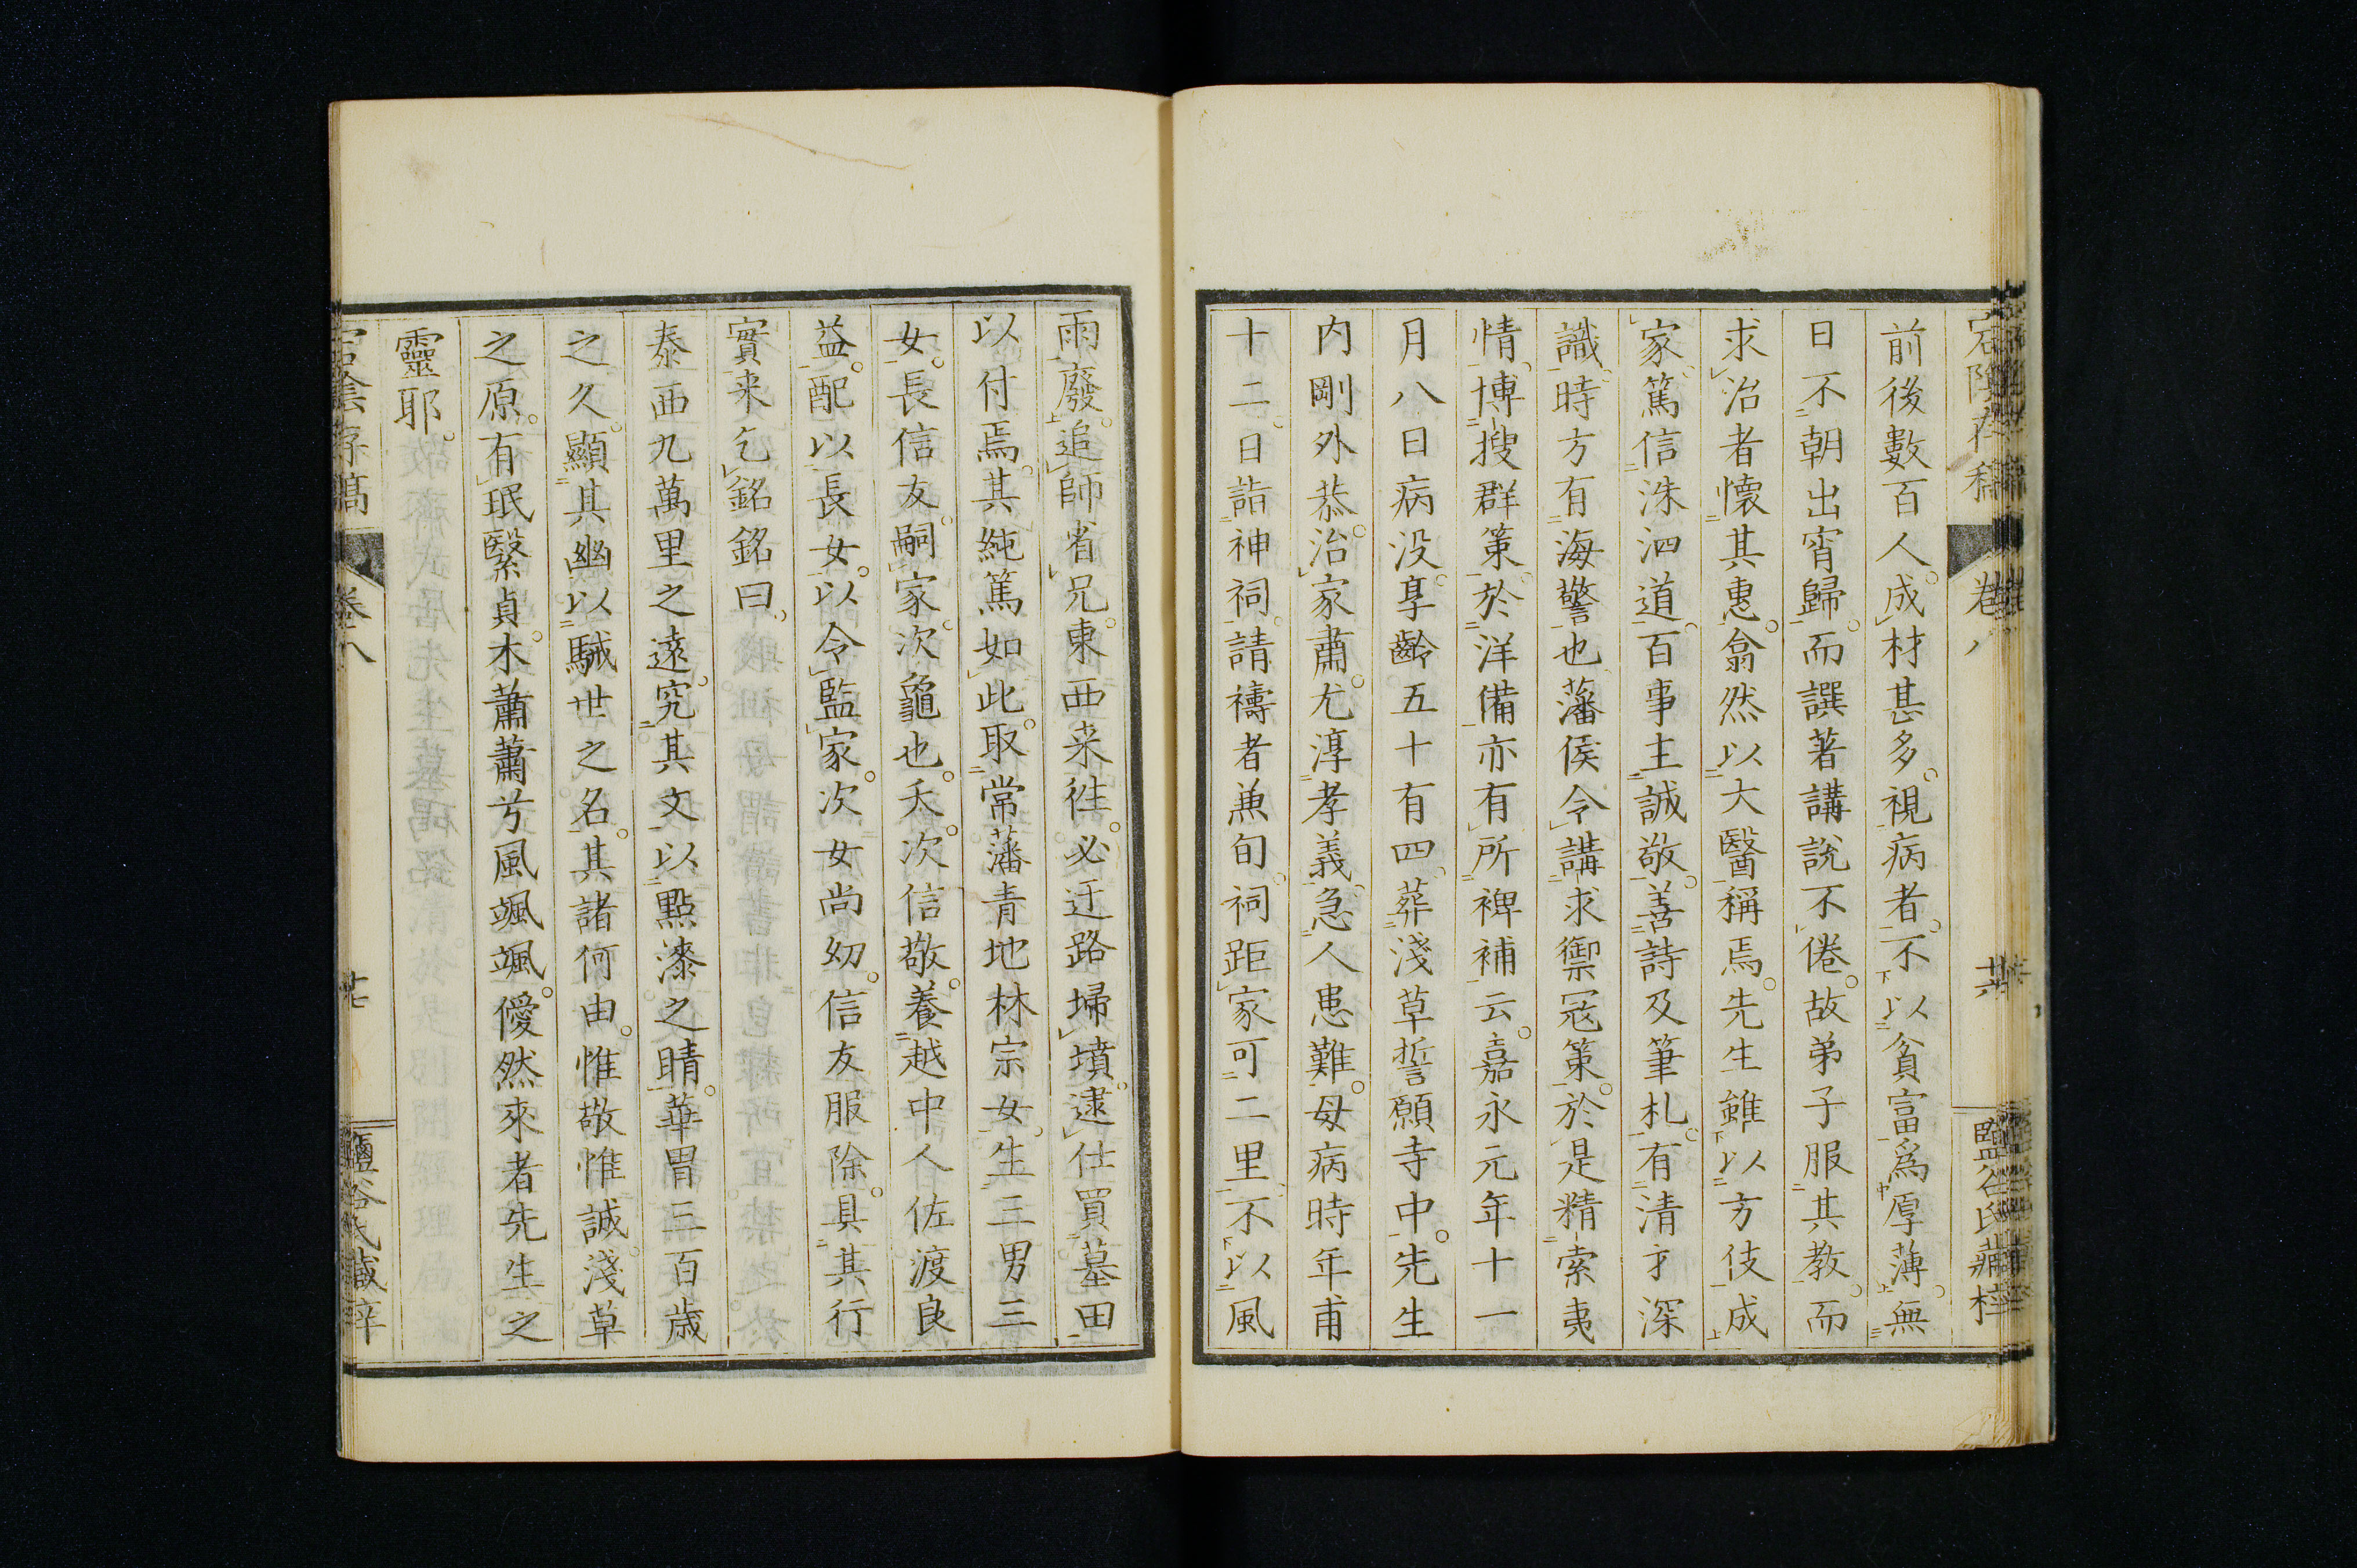 宕陰存稿 卷八 共 鹽谷氏藏梓
前後數百人。成材甚多。視病者。不以貧富爲厚薄。無
日不朝出宵歸。而譔著講說不倦。故弟子服其教。而
求治者懷其惠。翕然以大醫稱焉。先生雖以方伎成
家。篤信洙泗道。百事主誠敬。善詩及筆札。有清才深
識。時方有海警也。藩侯令講求禦冦策。於是精索夷
情。博搜群策。於洋備亦有所裨補云。嘉永元年十一
月八日病没。享齡五十有四。葬淺草誓願寺中。先生
内剛外恭。治家肅。尤淳孝義。急人患難。母病時年甫
十二。日詣神祠。請禱者兼旬。祠距家可二里。不以風
雨廢。追師省兄。東西来徃。必迂路埽墳。逮仕買墓田
以付焉。其純篤如此。取常藩青地林宗女。生三男三
女。長信友。嗣家。次龜也。夭。次信敬。養越中人佐渡良
益。配以長女。以令監家。次女尚幼。信友服除。具其行
實来乞銘。銘曰。
泰西九萬里之遠。究其文。以點漆之睛。華冑三百歳
之久。顯其幽。以馘世之名。其諸何由。惟敬惟誠。淺草
之原。有珉緊貞。木蕭蕭兮風颯颯。僾然來者先生之
靈耶。
宕陰存稿 卷八 鹽谷氏藏梓